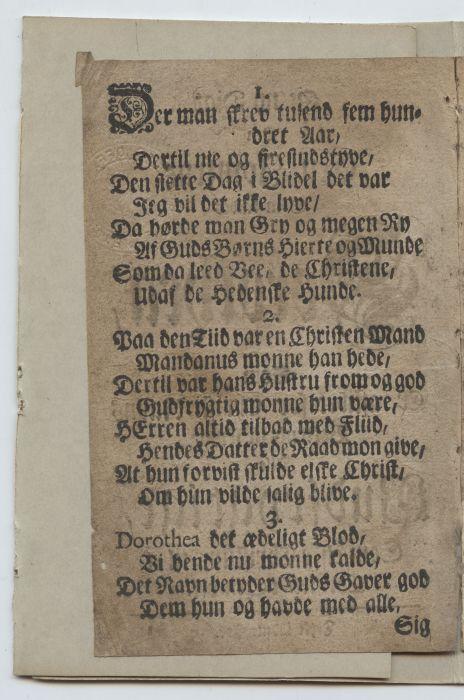 1.
Der man skrev tusend fem hun-
dret Aar,
Dertil nie og firesindstyve,
Den siette Dag i Blidel det var
Jeg vil det ikke lyve,
Da hørde man Gry og megen Ry
Af Guds Børns Hierte og Munde
Som da leed Vee, de Christene,
Udaf de Hedenske Hunde.
2.
Paa den Tiid var en Christen Mand
Mandanus monne han hede,
Dertil var hans Hustru from og god
Gudfrygtig monne hun være,
HErren altid tilbad med Fliid,
Hendes Datter de Raad mon give,
At hun forvist skulde elske Christ,
Om hun vilde salig blive.
3.
Dorothea det ædeligt Blod,
Vi hende nu monne kalde,
Det Navn betyder Guds Gaver god
Dem hun og havde med alle,
Sig